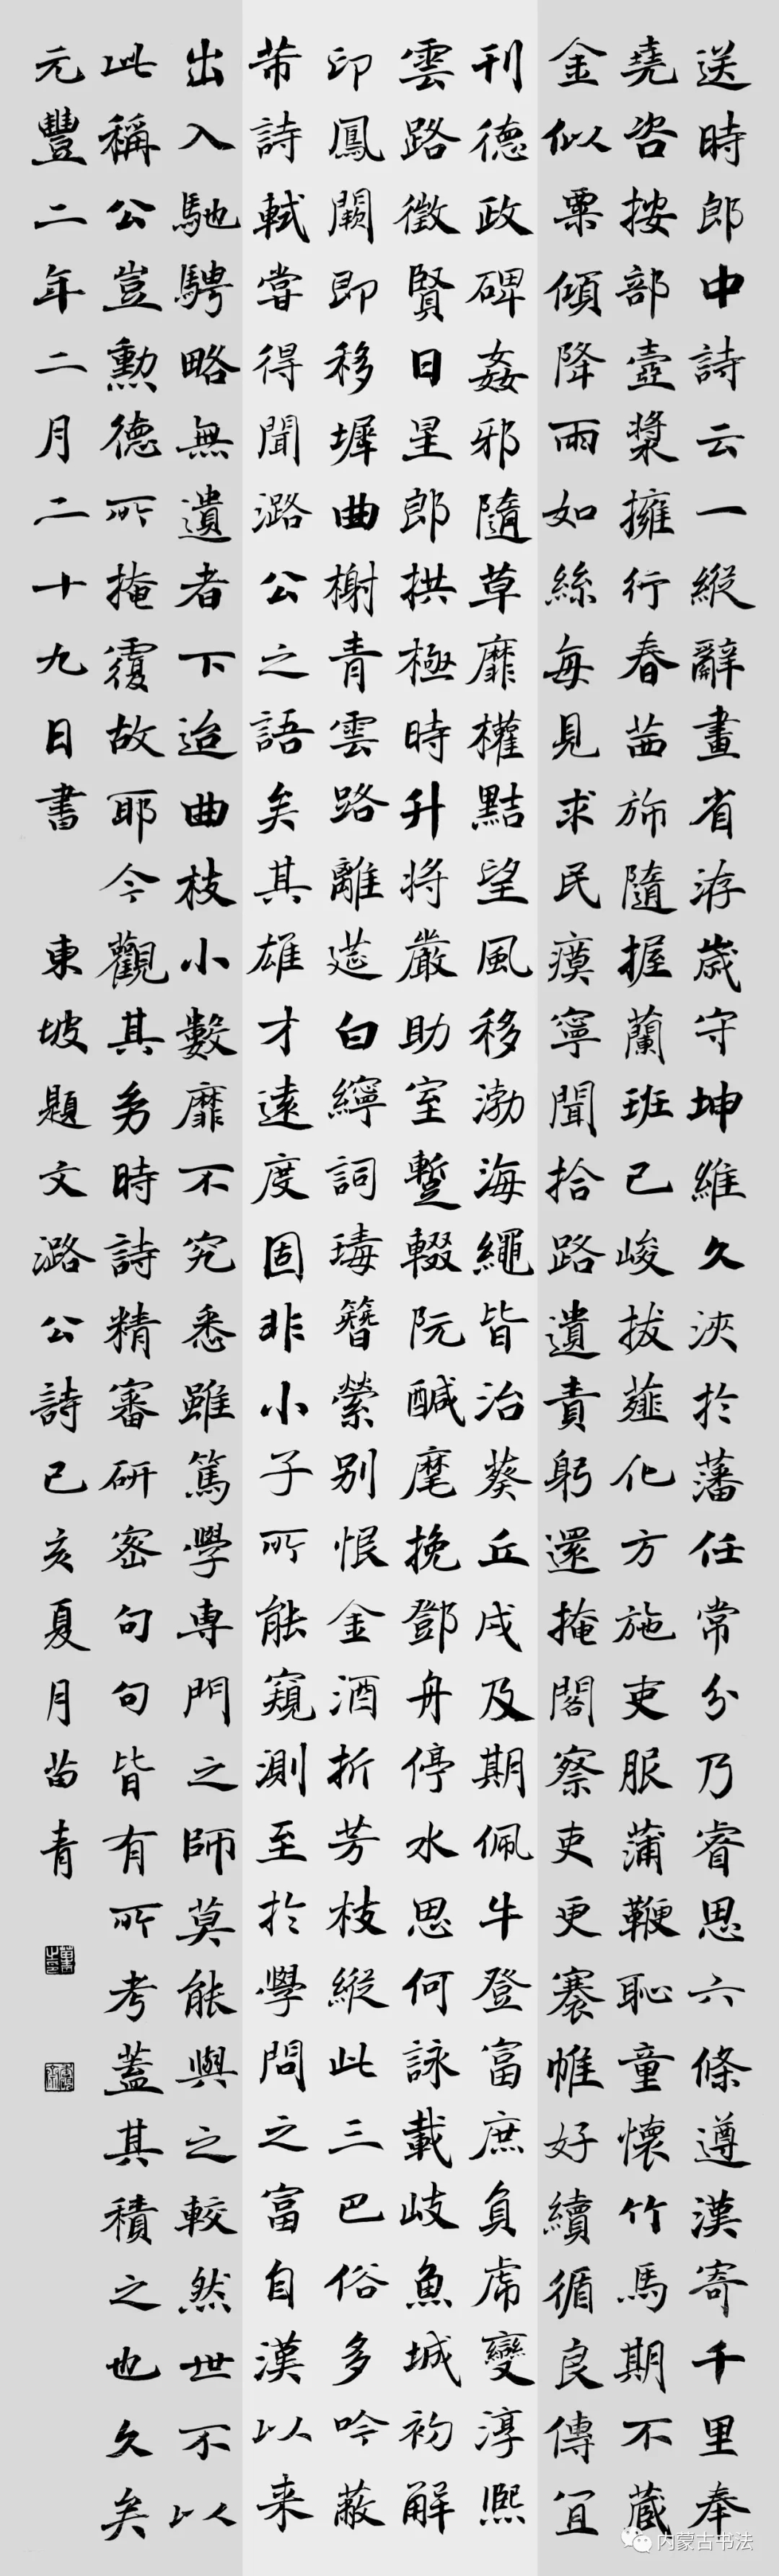 送時郎中詩云一縱辭畫省洊歲守坤維久浹於藩任常分乃睿思六條遵漢寄千里奉
堯咨按部壺漿擁行春茜旆隨握蘭班已峻拔薤化方施吏服蒲鞭恥童懷竹馬期不蔵
金似粟傾降雨如絲每見求民瘼寧聞拾路遺責躬還掩閣察吏更褰帷好續循良傳宜
刊德政碑姦邪隨草靡權黠望風移渤海繩皆治葵丘戍及期佩牛登富庶負虎變淳熙
雲路徵賢日星郎拱極時升將嚴助室蹔輟阮醎麾挽鄧舟停水思何詠載岐魚城初解
印鳳闕即移墀曲榭青雲路離筵白紵詞瑇簪縈別恨金酒折芳枝縱此三巴俗多吟蔽
芾詩軾嘗得聞潞公之語矣其雄才遠度固非小子所能窺測至於學問之富自漢以来
出入馳騁略無遺者下迨曲枝小數靡不究悉雖篤學専門之師莫能與之較然世不以
此稱公豈勳德所掩覆故耶今觀其多時詩精審研密句句皆有所考蓋其積之也久矣
元豐二年二月二十九日書 東坡題文潞公詩己亥夏月苗青
内蒙古书法